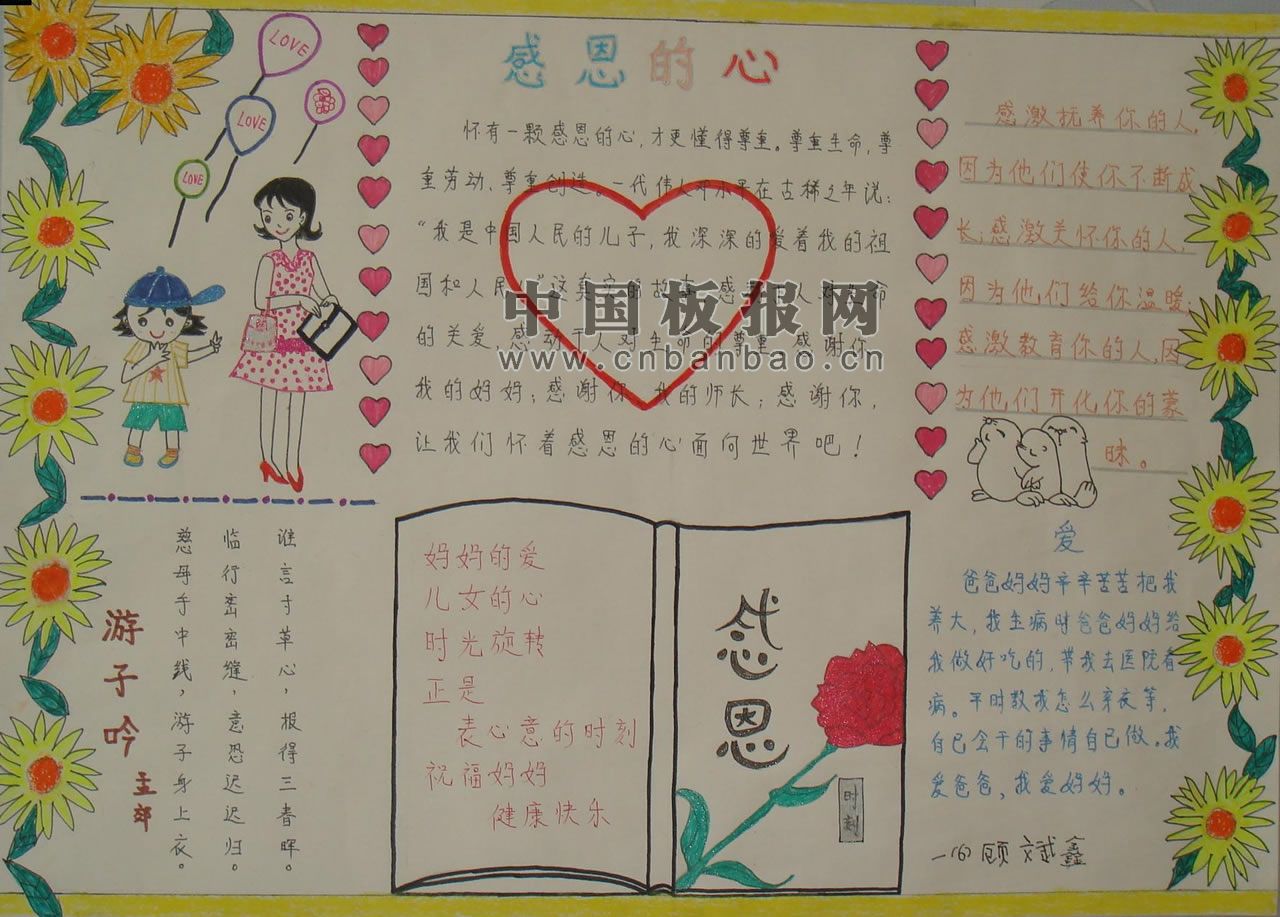 LOVE
LOVE
LOVE
感恩的心
怀有一颗感恩的心,才更懂得尊重。尊重生命,尊
重劳动、尊重创造。一代伟人邓小平在古稀之年说:
“我是中国人民的儿子,我深深的爱着我的祖
国和人民”这真实的故事,感
的关爱,感动于人对生命的尊重,感谢你,
我的妈妈;感谢你,我的师长;感谢你,
让我们怀着感恩的心面向世界吧!
中国板报网
www.cnbanbao.cn
感激抚养你的人,
因为他们使你不断成
长,感激关怀你的人,
因为他们给你温暖;
感激教育你的人,因
为他们开化你的蒙
昧。
游子吟
孟郊
慈母手中线,游子身上衣。
临行密密缝,意恐迟迟归。
谁言寸草心,报得三春晖。
妈妈的爱
儿女的心
时光旋转
正是
表心意的时刻
祝福妈妈
健康快乐
感恩
时刻
爱
爸爸妈妈辛辛苦苦把我
养大,我生病时爸爸妈妈给
我做好吃的,带我去医院看
病。平时教我怎么穿衣等,
自己会干的事情自己做。我
爱爸爸,我爱妈妈。
一(6)顾斌鑫